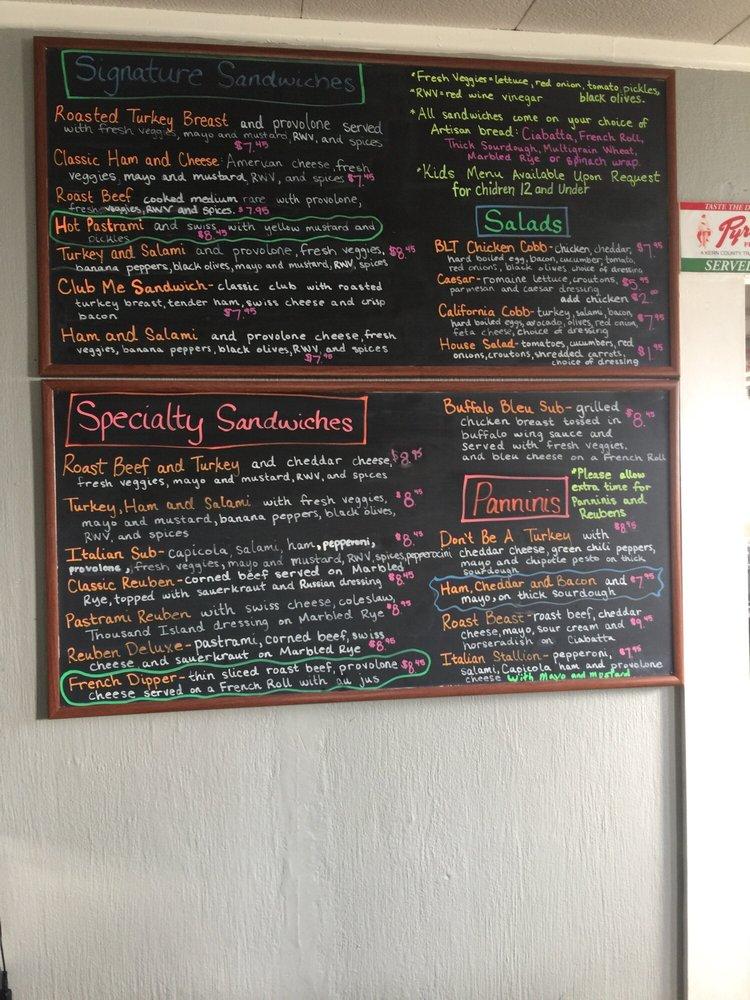 Signature Sandwiches
Roasted Turkey Breast and provolone served
with fresh veggies, mayo and mustard, RWV, and spices
$7.45
Classic Ham and Cheese: American cheese, fresh
veggies, mayo and mustard, RWV, and spices $7.45
Roast Beef cooked medium rare with provolone,
fresh veggies, RWV and spices. $7.95
Hot Pastrami and swiss with yellow mustard and
pickles $8.45
Turkey and Salami and provolone, fresh veggies, $8.45
banana peppers, black olives, mayo and mustard, RWV, spices
Club Me Sandwich- classic club with roasted
turkey breast, tender ham, swiss cheese and crisp
bacon $7.45
Ham and Salami and provolone cheese, fresh
veggies, banana peppers, black olives, RWV, and spices
$7.95
*Fresh Veggies = lettuce, red onion, tomato, pickles,
*RWV = red wine vinegar black olives.
*All sandwiches come on your choice of
Artisan bread: Ciabatta, French Roll,
Thick Sourdough, Multigrain Wheat,
Marbled Rye or spinach wrap.
*Kids Menu Available Upon Request
for chidren 12 and Under
Salads
BLT Chicken Cobb- chicken, cheddar, $7.95
hard boiled egg, bacon, cucumber, tomato,
red onions, black olives choice of dressing
Caesar- romaine lettuce, croutons, $5.95
parmesan and caesar dressing
add chicken $2.
California Cobb- turkey, salami, bacon $7.95
hard boiled eggs, avocado, olives, red onion,
feta cheese, choice of dressing
House Salad- tomatoes, cucumbers, red $1.95
onions, croutons, shredded carrots,
choice of dressing
Specialty Sandwiches
Roast Beef and Turkey and cheddar cheese, $8.95
fresh veggies, mayo and mustard, RWV, and spices
Turkey, Ham and Salami with fresh veggies, $8.45
mayo and mustard, banana peppers, black olives,
RWV, and spices
Italian Sub- capicola, salami, ham, pepperoni, $8.45
provolone, fresh veggies, mayo and mustard, RWV, spices, pepperoncini
Classic Reuben- corned beef served on Marbled
Rye, topped with sauerkraut and Russian dressing $8.45
Pastrami Reuben with swiss cheese, coleslaw,
Thousand Island dressing on Marbled Rye $8.95
Reuben Deluxe- pastrami, corned beef, swiss
cheese and sauerkraut on Marbled Rye $8.95
French Dipper- thin sliced roast beef, provolone $8.45
cheese served on a French Roll with au jus
Buffalo Bleu Sub- grilled
chicken breast tossed in $8.45
buffalo wing sauce and
served with fresh veggies,
and bleu cheese on a French Roll
Panninis
*Please allow
extra time for
Panninis and
Reubens
Don't Be A Turkey with $8.95
cheddar cheese, green chili peppers,
mayo and chipotle pesto on thick
sourdough
Ham, Cheddar and Bacon and $7.95
mayo, on thick sourdough
Roast Beast- roast beef, cheddar
cheese, mayo, sour cream and $9.45
horseradish on Ciabatta
Italian Stallion- pepperoni, $7.95
salami, Capicola, ham and provolone
cheese with mayo and mustard
TASTE THE D
Pyr
A KERN COUNTY TR
SERVE